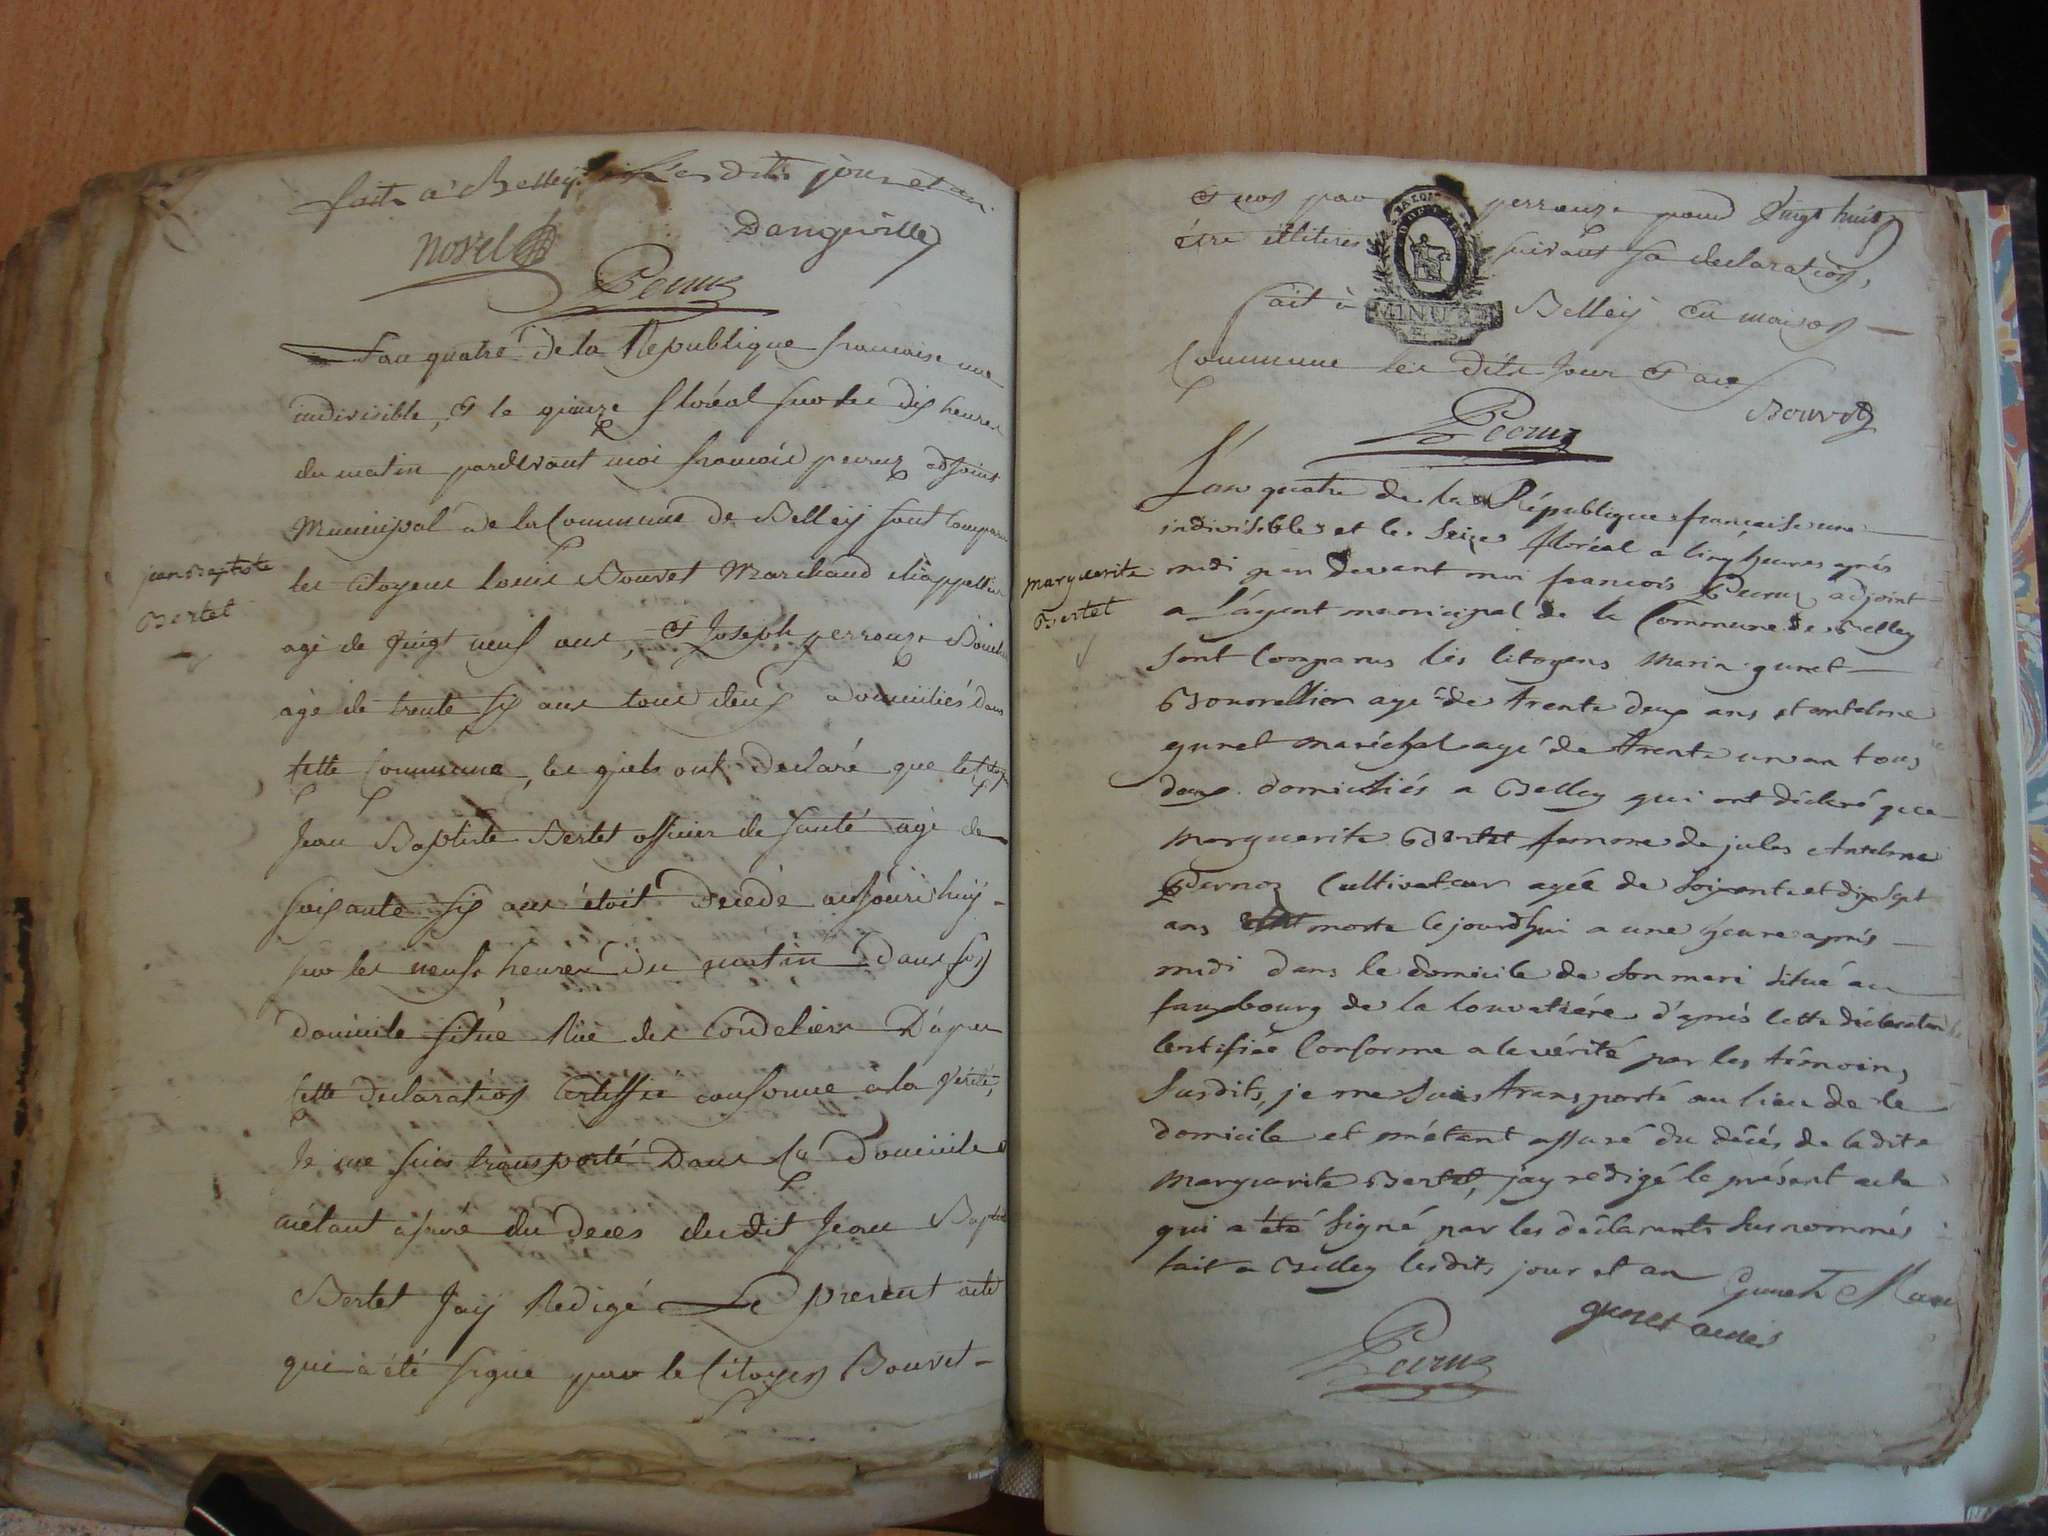 fait a Belley Lesdits jour et an
Novel
Dangeville
Peruz
L'an quatre de la Republique francaise une
indivisible, & le quinze floréal sur les dix heures
du matin pardevant moi francois peruz adjoint
Municipal de la Commune de Belley sont Comparu
les citoyens Louis Bouvet Marchand
agé de vingt neuf ans, & Joseph perrouze
agé de trente six ans tous deux domiciliés dans
cette Commune, les quels ont declaré que le
Jean Baptiste Bertet officier de santé agé de
soixante six ans étoit decedé aujourd'huy
sur les neuf heures du matin dans son
domicile situé Rüe des Cordeliers D'apres
cette declaration certiffié conforme a la vérité,
Je me suis transporté Dans le Domicile
métant assuré du deces dudit Jean Baptiste
Bertet Jay Redigé Le present acte
qui a été signé par le Citoyen Bouvet
jean Baptiste
Bertet
& non par perrouze pour
être illiteré suivant sa declaration,
MINUTE
fait à Belley en maison
Commune les dits Jour & an
Bouvet
Peruz
L'an quatre de la République francaise une
indivisible et le seize floréal a cinq heures aprés
midi par devant moi francois Peruz adjoint
a L'agent municipal de la Commune de Belley
sont Comparus les citoyens marin gunet
Bourrellier agé de trente deux ans et antelme
gunet maréchal agé de trente un an tous
deux domiciliés a Belley qui ont déclaré que
marguerite Bertet femme de jules Antelme
Pernoz Cultivateur agée de soixante et dix sept
ans est morte cejourdhui a une heure aprés
midi dans le domicile de son mari situé au
fauxbourg de la louvatiére d'aprés cette déclaration
certifiée Conforme a la vérité par les témoins
susdits, je me suis transporté au lieu de le
domicile et m'étant assuré du décés de ladite
marguerite Bertet, jay redigé le présent acte
qui a été signé par les déclarants susnommés
fait a Belley lesdits jour et an
marguerite
Bertet
Gunet
gunet
Peruz